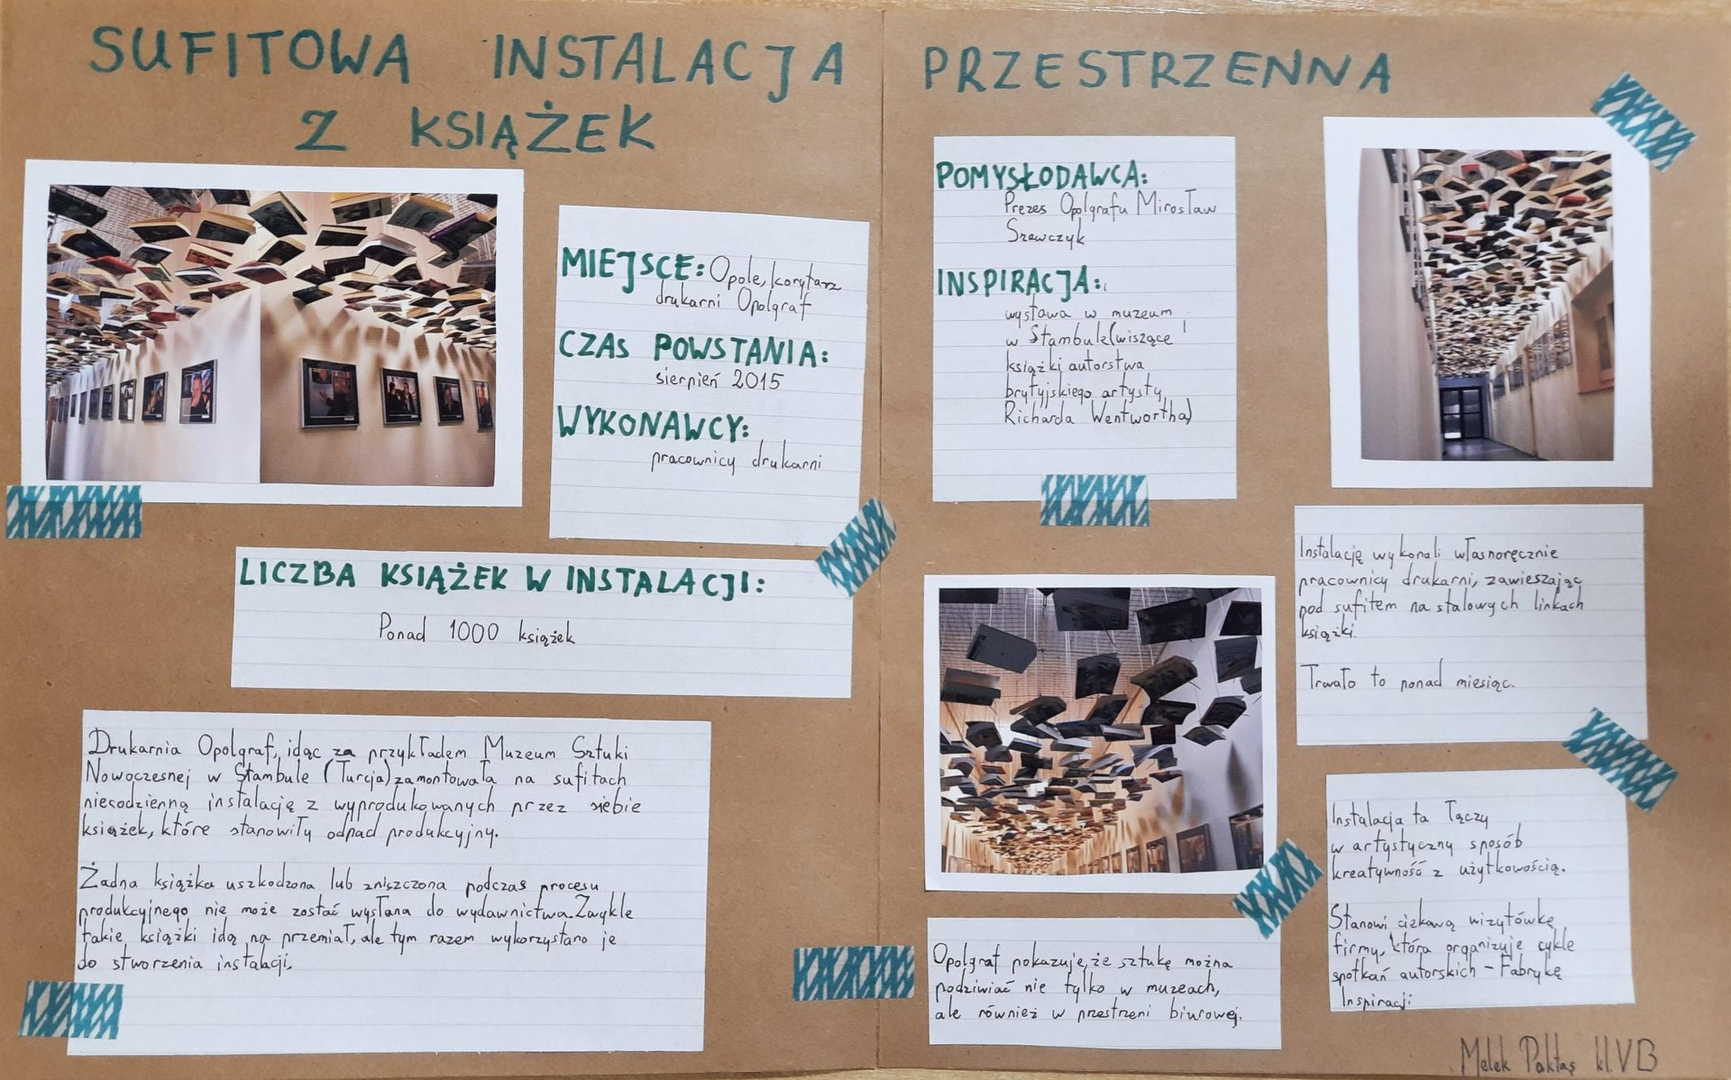 SUFITOWA INSTALACJA PRZESTRZENNA
Z KSIĄŻEK
MIEJSCE: Opole, korytarz
drukarni Opolgraf
CZAS POWSTANIA:
sierpień 2015
WYKONAWCY:
pracownicy drukarni
LICZBA KSIĄŻEK W INSTALACJI:
Ponad 1000 książek
Drukarnia Opolgraf, idąc za przykładem Muzeum Sztuki
Nowoczesnej w Stambule (Turcja) zamontowała na sufitach
niecodzienną instalację z wyprodukowanych przez siebie
książek, które stanowiły odpad produkcyjny.
Żadna książka uszkodzona lub zniszczona podczas procesu
produkcyjnego nie może zostać wysłana do wydawnictwa. Zwykle
takie książki idą na przemiał, ale tym razem wykorzystano je
do stworzenia instalacji.
POMYSŁODAWCA:
Prezes Opolgrafu Mirosław
Szewczyk
INSPIRACJA:
wystawa w muzeum
w Stambule (wiszące
książki autorstwa
brytyjskiego artysty
Richarda Wentwortha)
Opolgraf pokazuje, że sztukę można
podziwiać nie tylko w muzeach,
ale również w przestrzeni biurowej.
Instalację wykonali własnoręcznie
pracownicy drukarni, zawieszając
pod sufitem na stalowych linkach
książki.
Trwało to ponad miesiąc.
Instalacja ta łączy
w artystyczny sposób
kreatywność z użytkowością.
Stanowi ciekawą wizytówkę
firmy, która organizuje cykle
spotkań autorskich – Fabrykę
Inspiracji
Melek Paktaş kl. VB